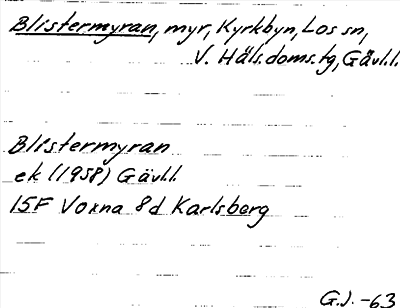 Blistermyran, myr, Kyrkbyn, Los sn,
V. Häls. doms. tg, Gävl.l.
Blistermyran
ek (1958) Gävl.l.
15F Voxna 8d Karlsberg
G.J. -63